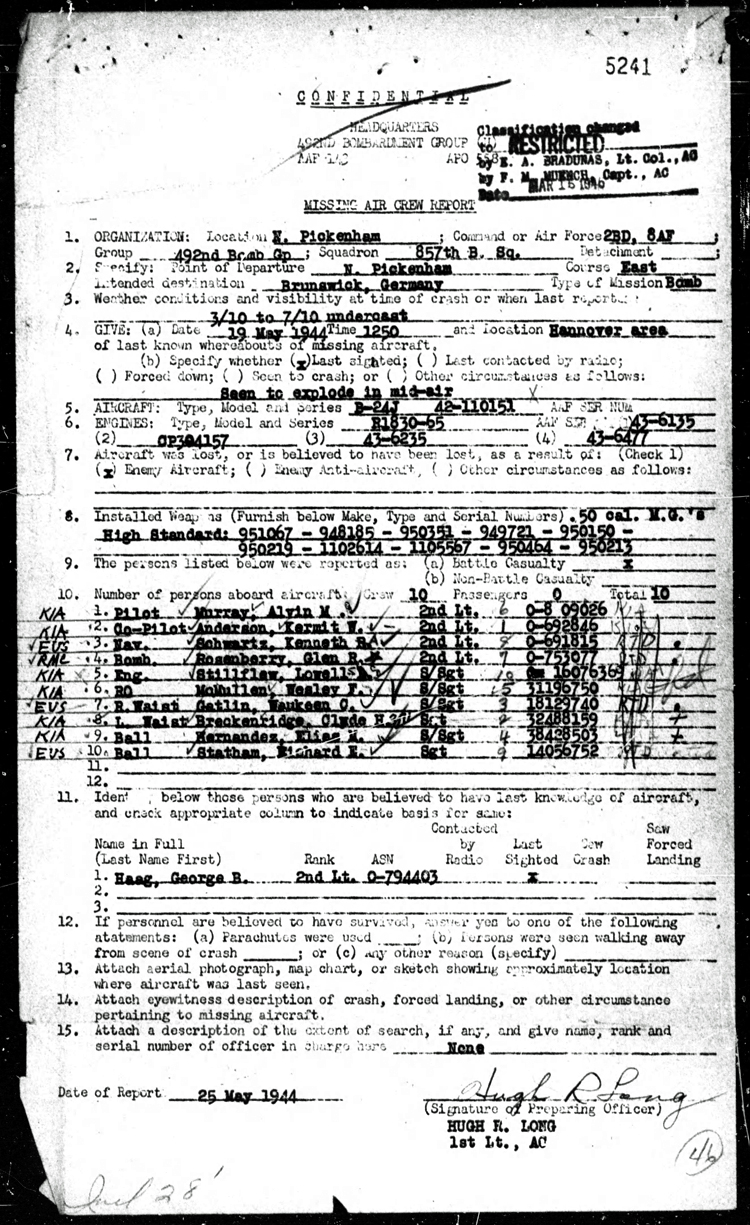 5241
CONFIDENTIAL
HEADQUARTERS
492ND BOMBARDMENT GROUP (H)
AAF 143 APO 558
Classification changed
to RESTRICTED
by E. A. BRADUNAS, Lt. Col., AC
by F. M. MUENCH, Capt., AC
Date MAR 16 1946
MISSING AIR CREW REPORT
1. ORGANIZATION: Location N. Pickenham ; Command or Air Force 2BD, 8AF ;
Group 492nd Bomb Gp ; Squadron 857th B. Sq. Detachment ;
2. Specify: Point of Departure N. Pickenham Course East
Intended destination Brunswick, Germany Type of Mission Bomb
3. Weather conditions and visibility at time of crash or when last reported:
3/10 to 7/10 undercast
4. GIVE: (a) Date 19 May 1944 Time 1250 and location Hannover area
of last known whereabouts of missing aircraft.
(b) Specify whether (x) Last sighted; ( ) Last contacted by radio;
( ) Forced down; ( ) Seen to crash; or ( ) Other circumstances as follows:
Seen to explode in mid-air
5. AIRCRAFT: Type, Model and series B-24J 42-110151 AAF SER NUM
6. ENGINES: Type, Model and Series R1830-65 AAF SER 43-6135
(2) CP304157 (3) 43-6235 (4) 43-6477
7. Aircraft was lost, or is believed to have been lost, as a result of: (Check 1)
(x) Enemy Aircraft; ( ) Enemy Anti-aircraft, ( ) Other circumstances as follows:
8. Installed Weapons (Furnish below Make, Type and Serial Numbers) .50 cal. M.G.'s
High Standard: 951067 - 948185 - 950351 - 949721 - 950150 -
950219 - 1102614 - 1105567 - 950464 - 950213
9. The persons listed below were reported as: (a) Battle Casualty x
(b) Non-Battle Casualty
10. Number of persons aboard aircraft: Crew 10 Passengers 0 Total 10
KIA 1. Pilot Murray, Alvin M. 2nd Lt. 6 0-809026
KIA 2. Co-Pilot Anderson, Kermit W. 2nd Lt. 1 0-692846
EUS 3. Nav. Schwartz, Kenneth B. 2nd Lt. 8 0-691815 RTD
RML 4. Bomb. Rosenberry, Glen R. 2nd Lt. 7 0-753077 RTD
KIA 5. Eng. Stillflew, Lowell S/Sgt 10 16076369
KIA 6. RO McMullen, Wesley F. S/Sgt 5 31196750
EUS 7. R. Waist Gatlin, Waukeen C. S/Sgt 3 18129740 RTD
KIA 8. L. Waist Breckenridge, Clyde H. Sgt 2 32488159
KIA 9. Ball Hernandez, Elias M. S/Sgt 4 38428503
EUS 10. Ball Statham, Richard E. Sgt 9 14056752 RTD
11.
12.
11. Ident below those persons who are believed to have last knowledge of aircraft,
and check appropriate column to indicate basis for same:
Contacted Saw
Name in Full by Last Saw Forced
(Last Name First) Rank ASN Radio Sighted Crash Landing
1. Haag, George B. 2nd Lt. 0-794403 x
2.
3.
12. If personnel are believed to have survived, answer yes to one of the following
atatements: (a) Parachutes were used ; (b) Persons were seen walking away
from scene of crash ; or (c) Any other reason (specify)
13. Attach aerial photograph, map chart, or sketch showing approximately location
where aircraft was last seen.
14. Attach eyewitness description of crash, forced landing, or other circumstance
pertaining to missing aircraft.
15. Attach a description of the extent of search, if any, and give name, rank and
serial number of officer in charge here None
Date of Report 25 May 1944
Hugh R. Long
(Signature of Preparing Officer)
HUGH R. LONG
1st Lt., AC
46
Incl 28